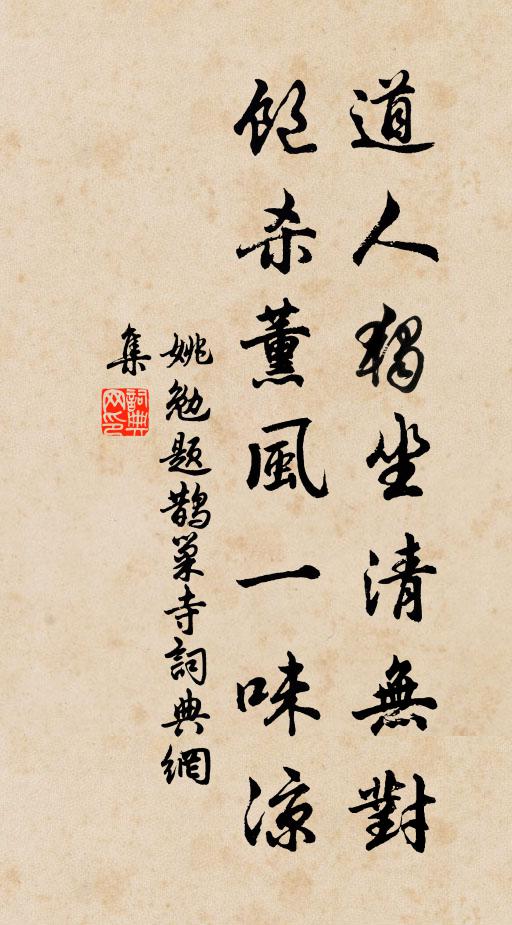 道人独坐清無對
飽杀薰風一味涼
姚勉题鹊巢寺詞典網
集
詞典
网印